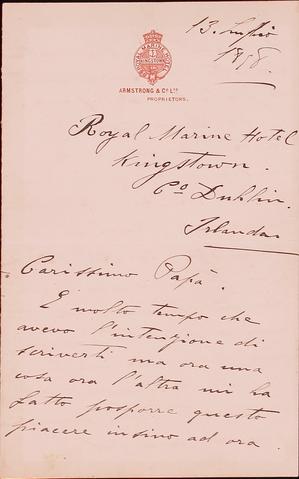 13. Luglio
1898.
ROYAL MARINE HOTEL
KINGSTOWN
ARMSTRONG & Co LTD
PROPRIETORS.
Royal Marine Hotel
Kingstown.
Co Dublin.
Irlanda
Carissimo Papà.
E molto tempo che
avevo l'intenzione di
scriverti ma ora una
cosa ora l'altra mi ha
fatto posporre questo
piacere insino ad ora.